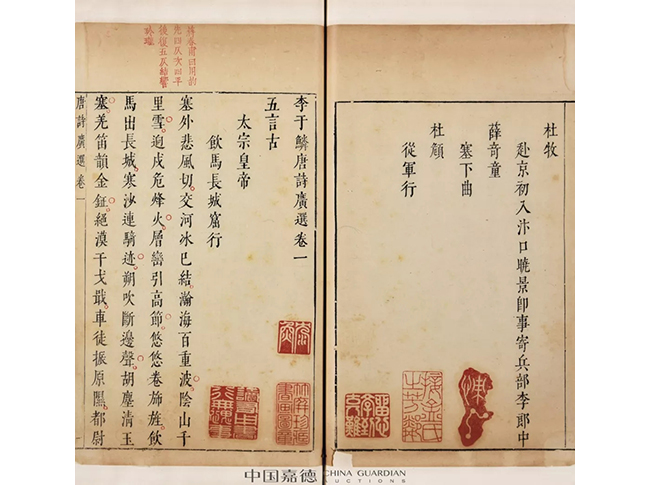 杜牧
赴京初入汴口曉景即事寄兵部李郎中
薛奇童
塞下曲
杜頠
從軍行
李于鱗唐詩廣選卷一
五言古
太宗皇帝
飲馬長城窟行
塞外悲風切交河冰已結瀚海百重波陰山千
里雪迥戍危烽火層巒引高節悠悠卷旆旌飲
馬出長城寒沙連騎迹朔吹斷邊聲胡塵清玉
塞羌笛韻金鉦絕漠干戈戢車徒振原隰都尉
唐詩廣選 卷一
春甫曰用韵
先四仄次四平
後復五仄結
中国嘉德 CHINA GUARDIAN
AUCTIONS